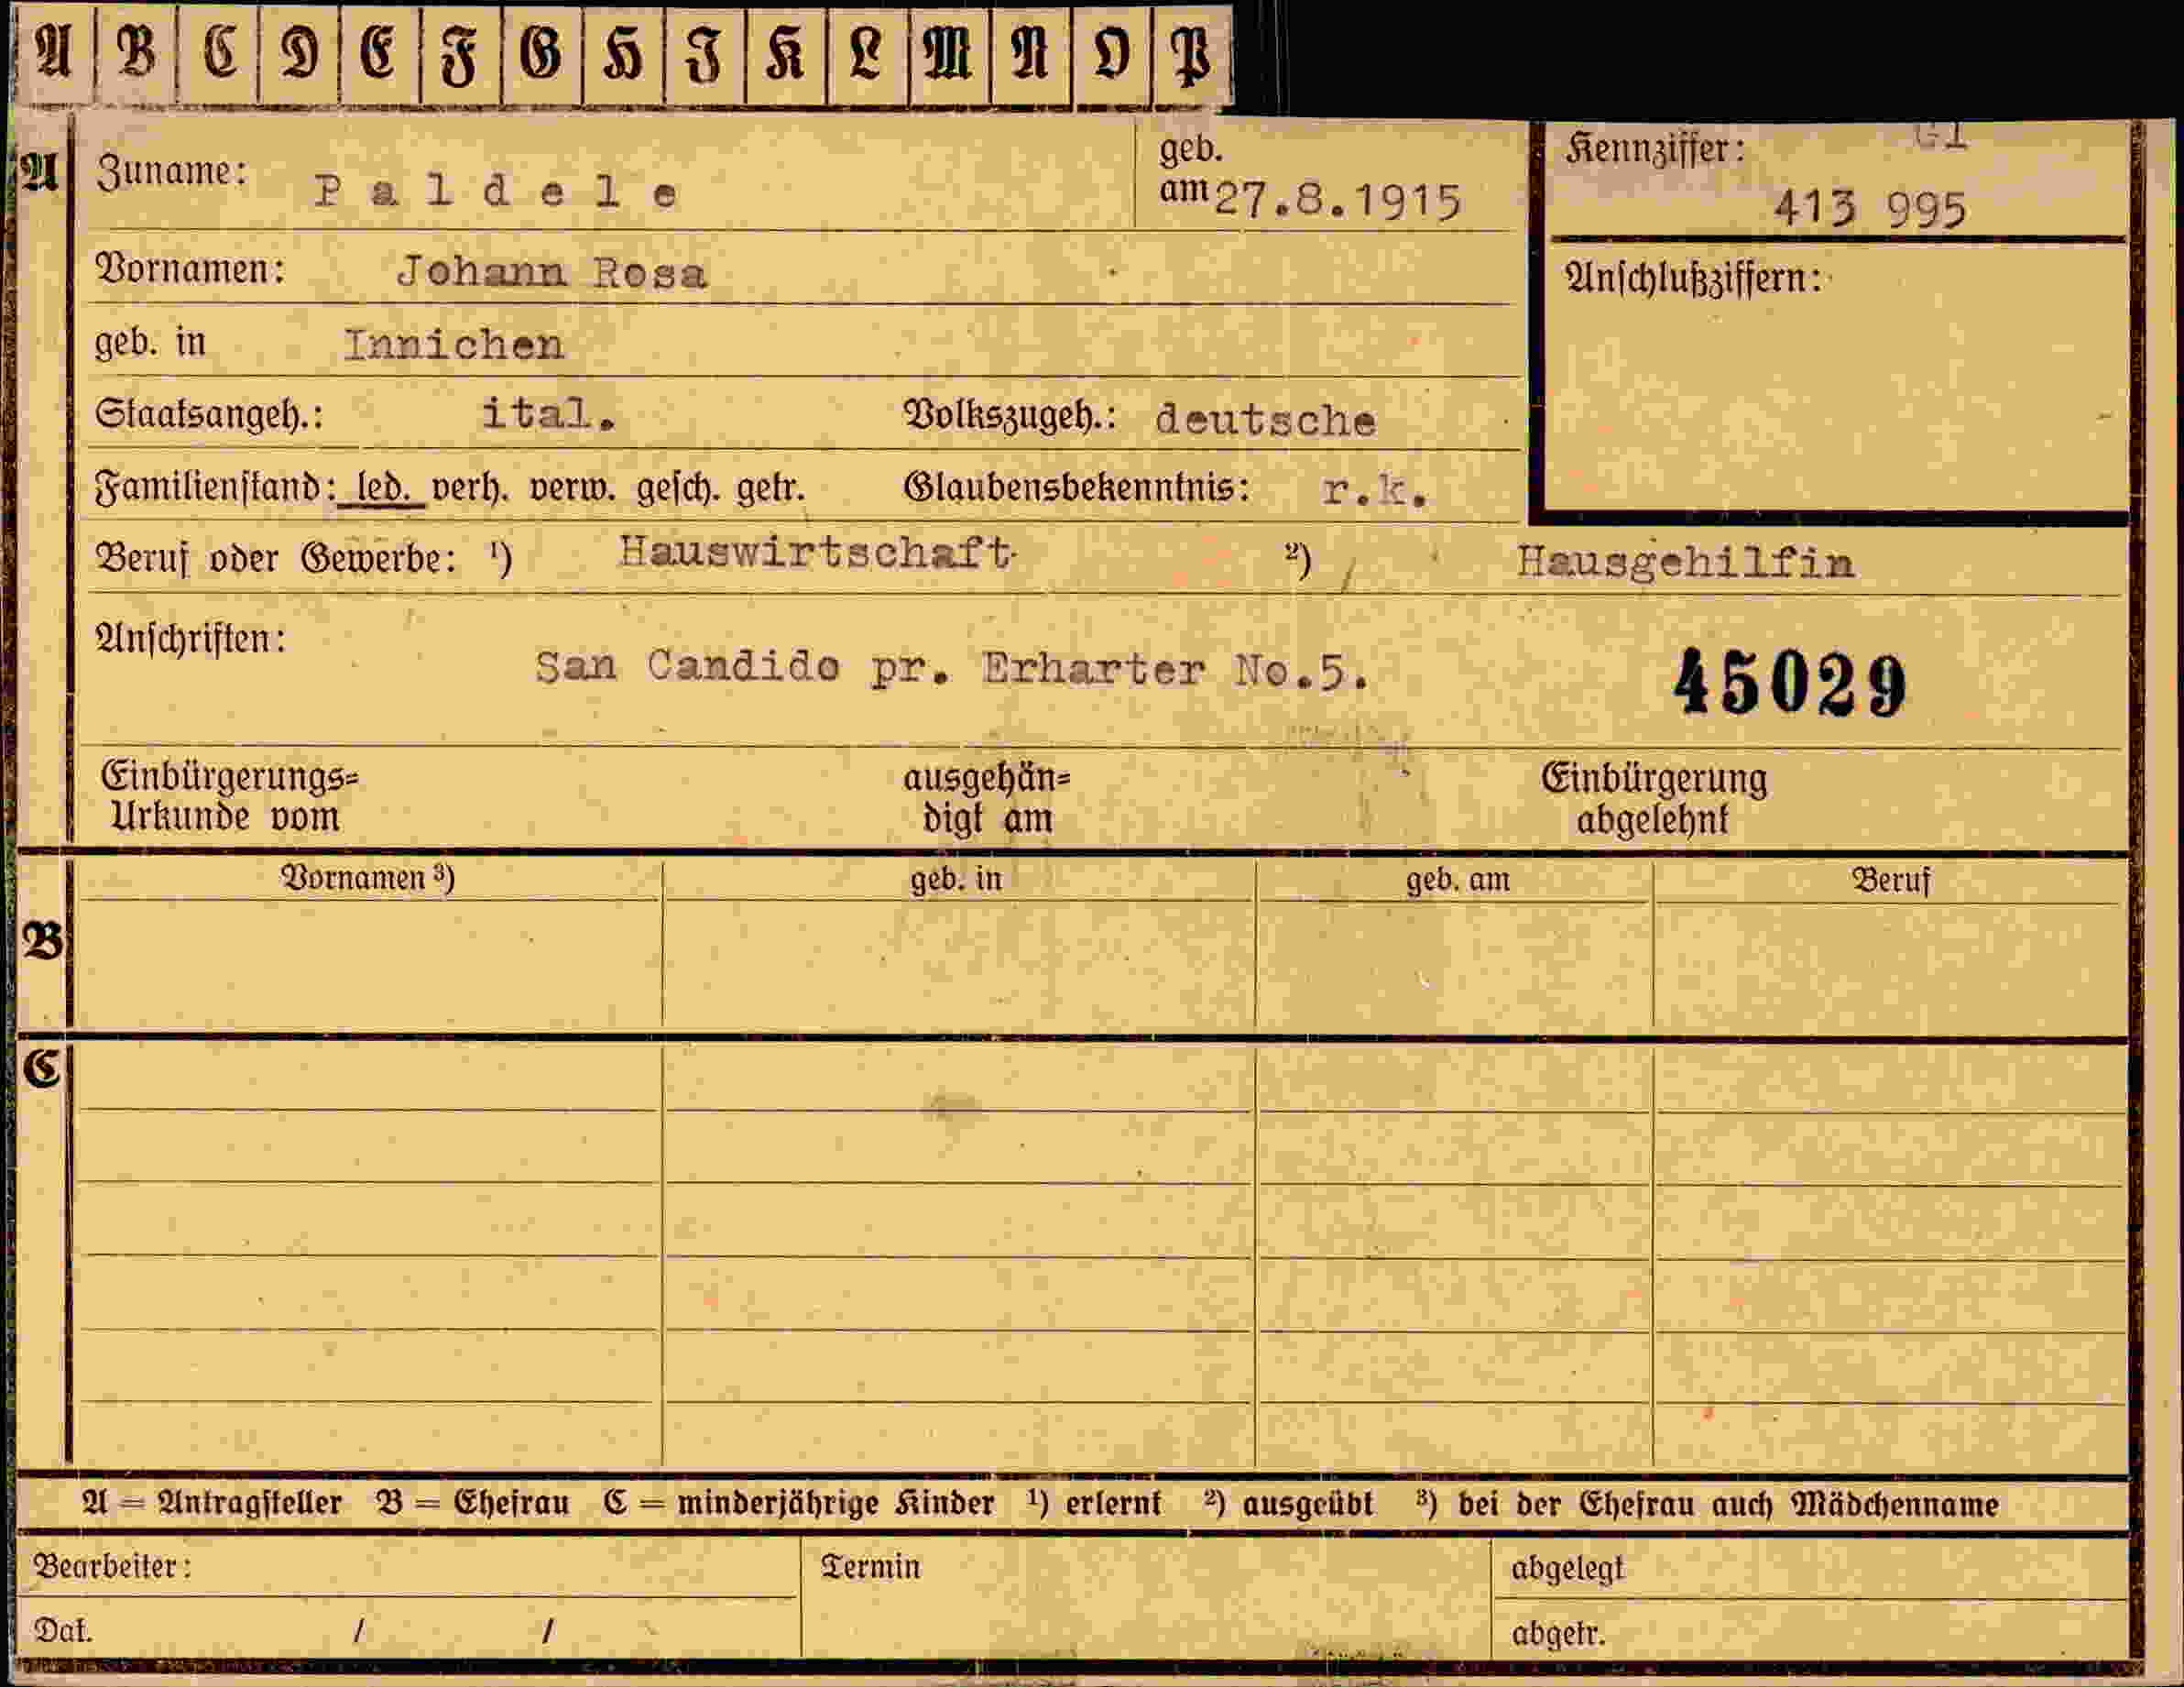 A B C D E F G H J K L M N O P
A Zuname: Paldele geb. am 27.8.1915 Kennziffer: 413 995
Vornamen: Johann Rosa Anschlußziffern:
geb. in Innichen
Staatsangeh.: ital. Volkszugeh.: deutsche
Familienstand: led. verh. verw. gesch. getr. Glaubensbekenntnis: r.k.
Beruf oder Gewerbe: ¹) Hauswirtschaft ²) Hausgehilfin
Anschriften: San Candido pr. Erharter No.5. 45029
Einbürgerungs= ausgehän= Einbürgerung
Urkunde vom digt am abgelehnt
Vornamen ³) geb. in geb. am Beruf
B
C
A = Antragsteller B = Ehefrau C = minderjährige Kinder ¹) erlernt ²) ausgeübt ³) bei der Ehefrau auch Mädchenname
Bearbeiter: Termin abgelegt
Dat. / / abgetr.